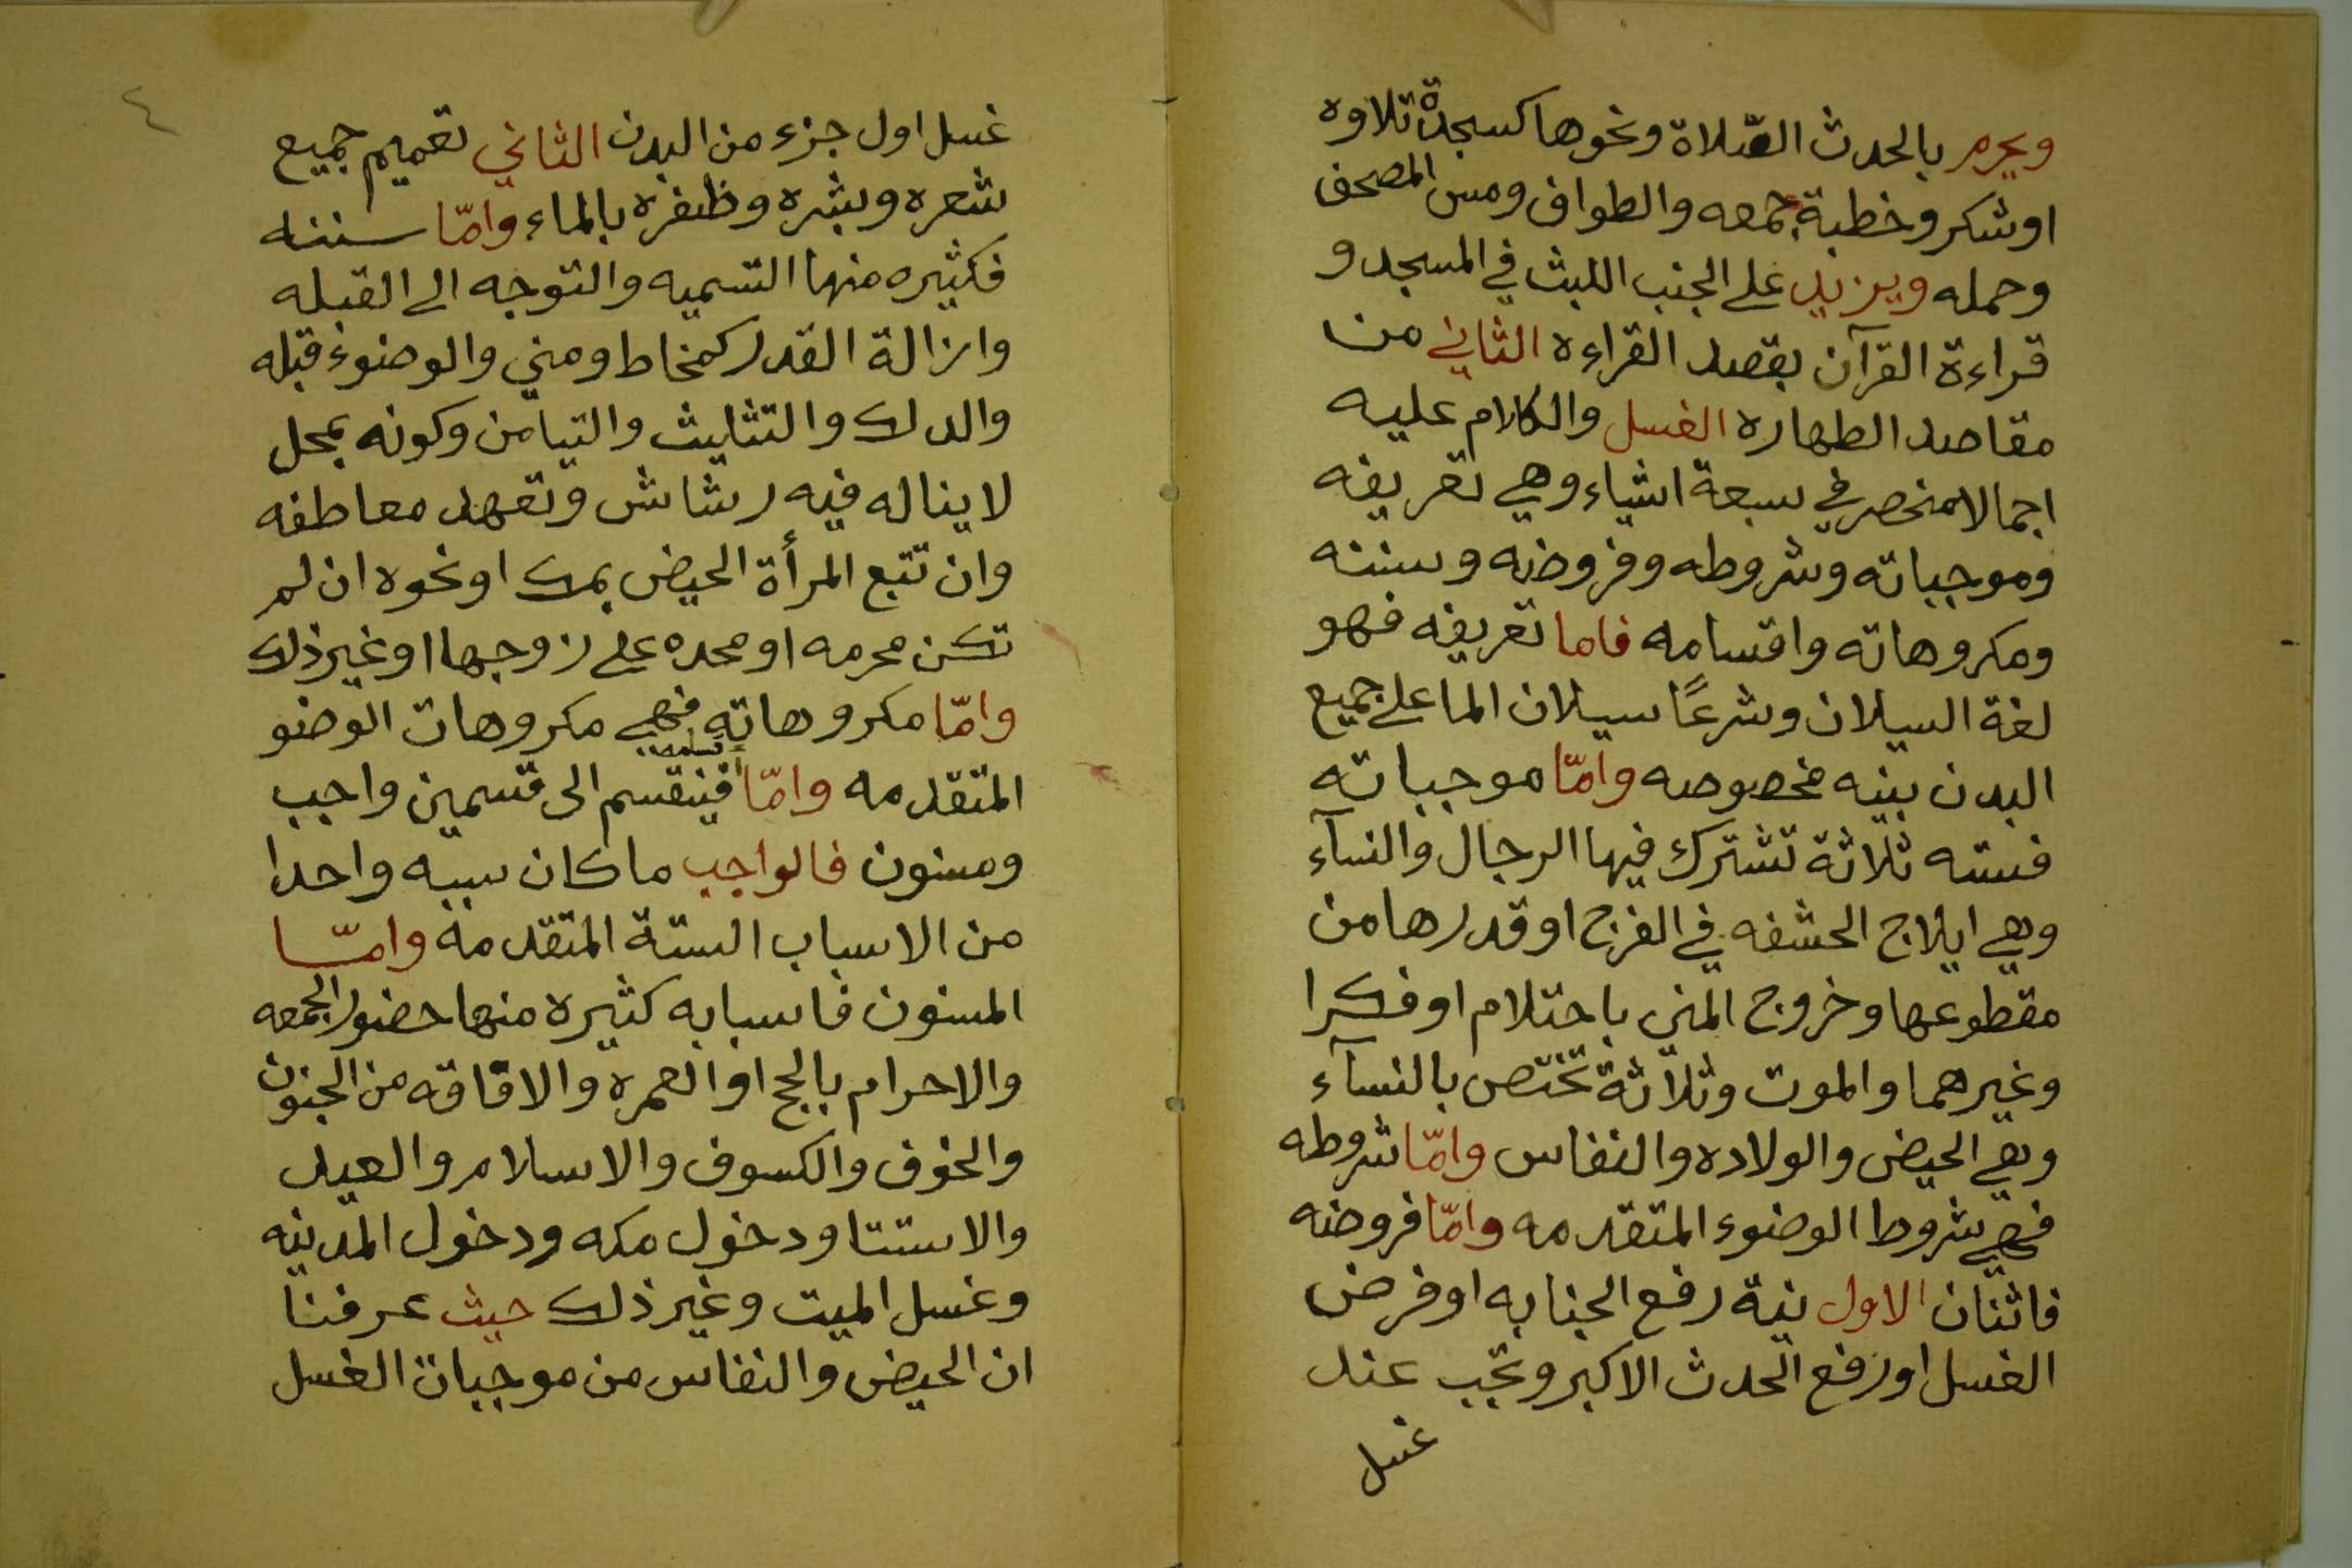 ويحرم بالحدث الصّلاة ونحوها كسجدة تلاوه
او شكر وخطبة جمعه والطواف ومس المصحف
وحمله ويزيد على الجنب اللبث في المسجد و
قراءة القرآن بقصد القراءه الثاني من
مقاصد الطهاره الغسل والكلام عليه
اجمالا منحصر في سبعة اشياء وهي تعريفه
وموجباته وشروطه وفروضه وسننه
ومكروهاته واقسامه فاما تعريفه فهو
لغة السيلان وشرعًا سيلان الما على جميع
البدن بنيه مخصوصه وامّا موجباته
فسته ثلاثة تشترك فيها الرجال والنسآء
وهي ايلاج الحشفه في الفرج او قدرها من
مقطوعها وخروج المني باحتلام او فكرا
وغيرهما والموت وثلاثة تختص بالنسآء
وهي الحيض والولاده والنفاس وامّا شروطه
فهي شروط الوضوء المتقدمه وامّا فروضه
فاثنان الاول نية رفع الجنابه او فرض
الغسل او رفع الحدث الاكبر وتجب عند
غسل
٤
غسل اول جزء من البدن الثاني تعميم جميع
شعره وبشره وظفره بالماء وامّا سننه
فكثيره منها التسميه والتوجه الى القبله
وازالة القدر كمخاط ومني والوضوء قبله
والدلك والتثليث والتيامن وكونه بمحل
لا يناله فيه رشاش وتعهد معاطفه
وان تتبع المرأة الحيض بمسك او نحوه ان لم
تكن محرمه او محده على زوجها او غير ذلك
وامّا مكروهاته فهي مكروهات الوضو
المتقدمه وامّا اقسامه فينقسم الى قسمين واجب
ومسنون فالواجب ما كان سببه واحدا
من الاسباب الستة المتقدمه وامّا
المسنون فاسبابه كثيره منها حضور الجمعه
والاحرام بالحج او العمره والافاقه من الجنون
والخوف والكسوف والاسلام والعيد
والاستسقا ودخول مكه ودخول المدينه
وغسل الميت وغير ذلك حيث عرفنا
ان الحيض والنفاس من موجبات الغسل